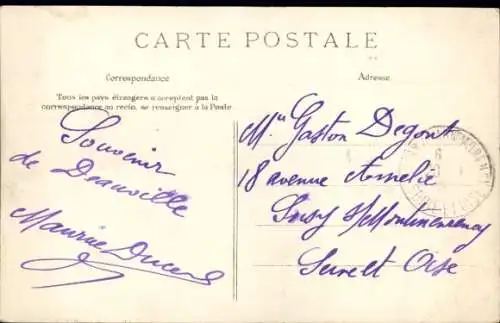 CARTE POSTALE
Correspondance
Adresse
Tous les pays étrangers n'acceptent pas la
correspondance au recto, se renseigner à la Poste
Souvenir
de Deauville
Maurice
Mr Gaston Degont
18 avenue Amelie
Soisy s/ Montmorency
Seine et Oise